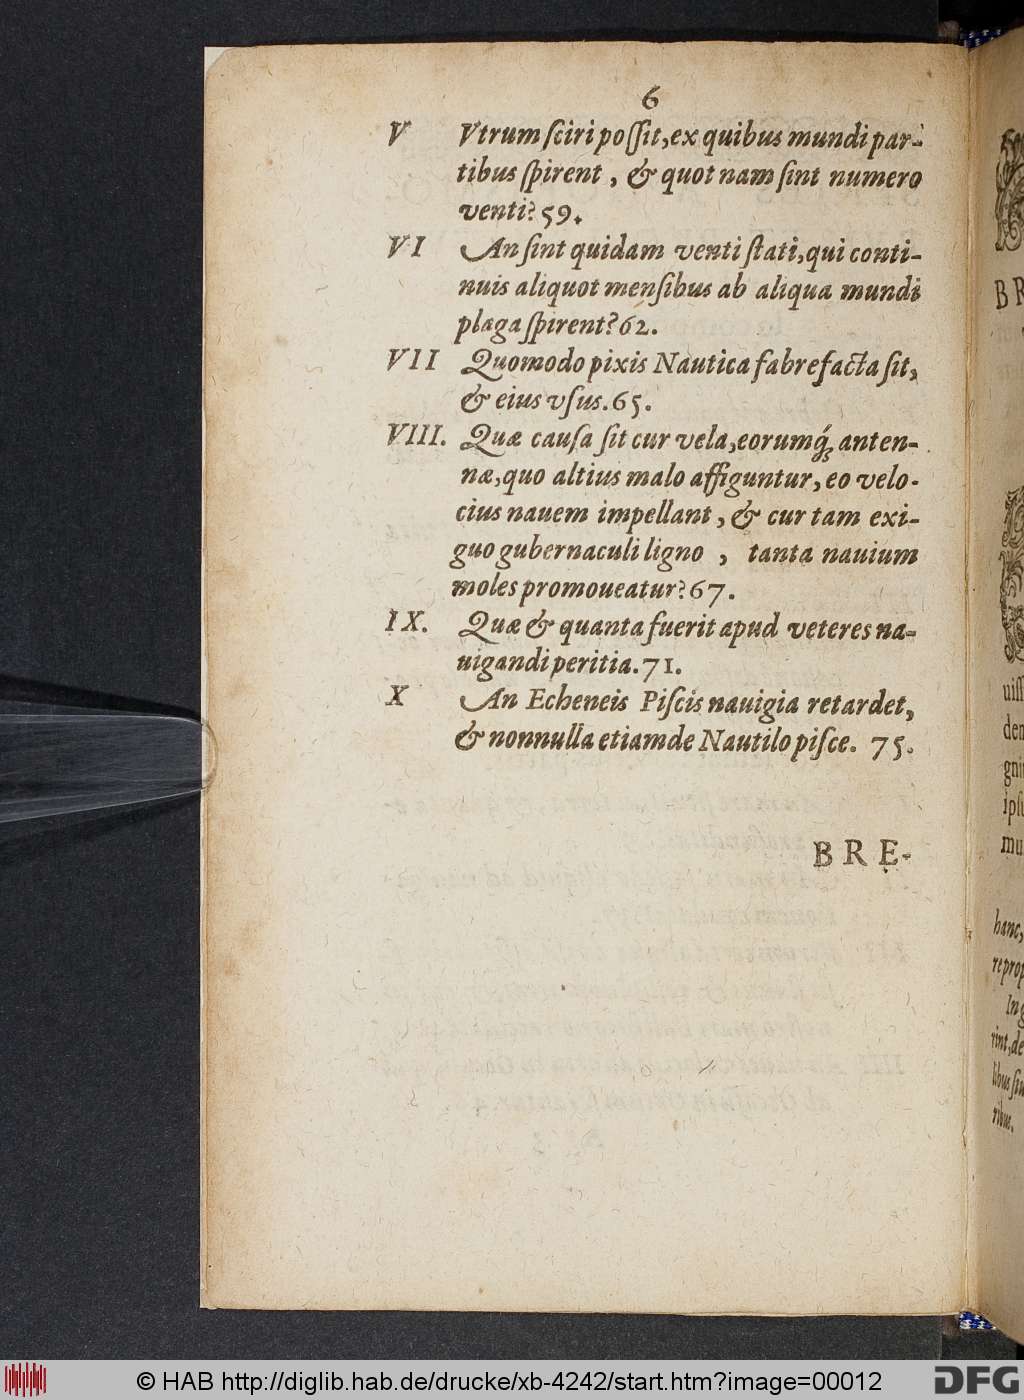 6
V Vtrum sciri possit, ex quibus mundi par-
tibus spirent, & quot nam sint numero
venti? 59.
VI An sint quidam venti stati, qui conti-
nuis aliquot mensibus ab aliqua mundi
plaga spirent? 62.
VII Quomodo pixis Nautica fabrefacta sit,
& eius vsus. 65.
VIII. Quæ causa sit cur vela, eorumq́; anten-
næ, quo altius malo affiguntur, eo velo-
cius nauem impellant, & cur tam exi-
guo gubernaculi ligno, tanta nauium
moles promoueatur? 67.
IX. Quæ & quanta fuerit apud veteres na-
uigandi peritia. 71.
X An Echeneis Piscis nauigia retardet,
& nonnulla etiam de Nautilo pisce. 75.
BRE-
BR
uiss
den
gni
ips
mu
hanc,
re prop
Ing
rint, de
libus siu
ribus.
© HAB http://diglib.hab.de/drucke/xb-4242/start.htm?image=00012
DFG